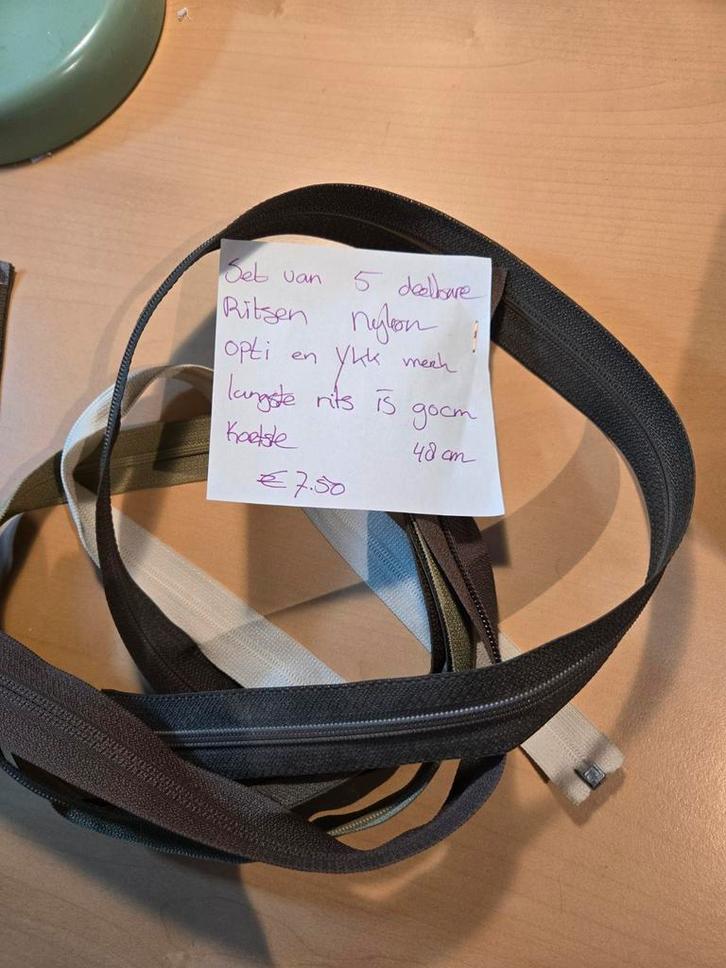 Set van 5 deelbare
Ritsen nylon
opti en ykk merk
langste rits is 90cm
Kortste 48 cm
€ 7.50